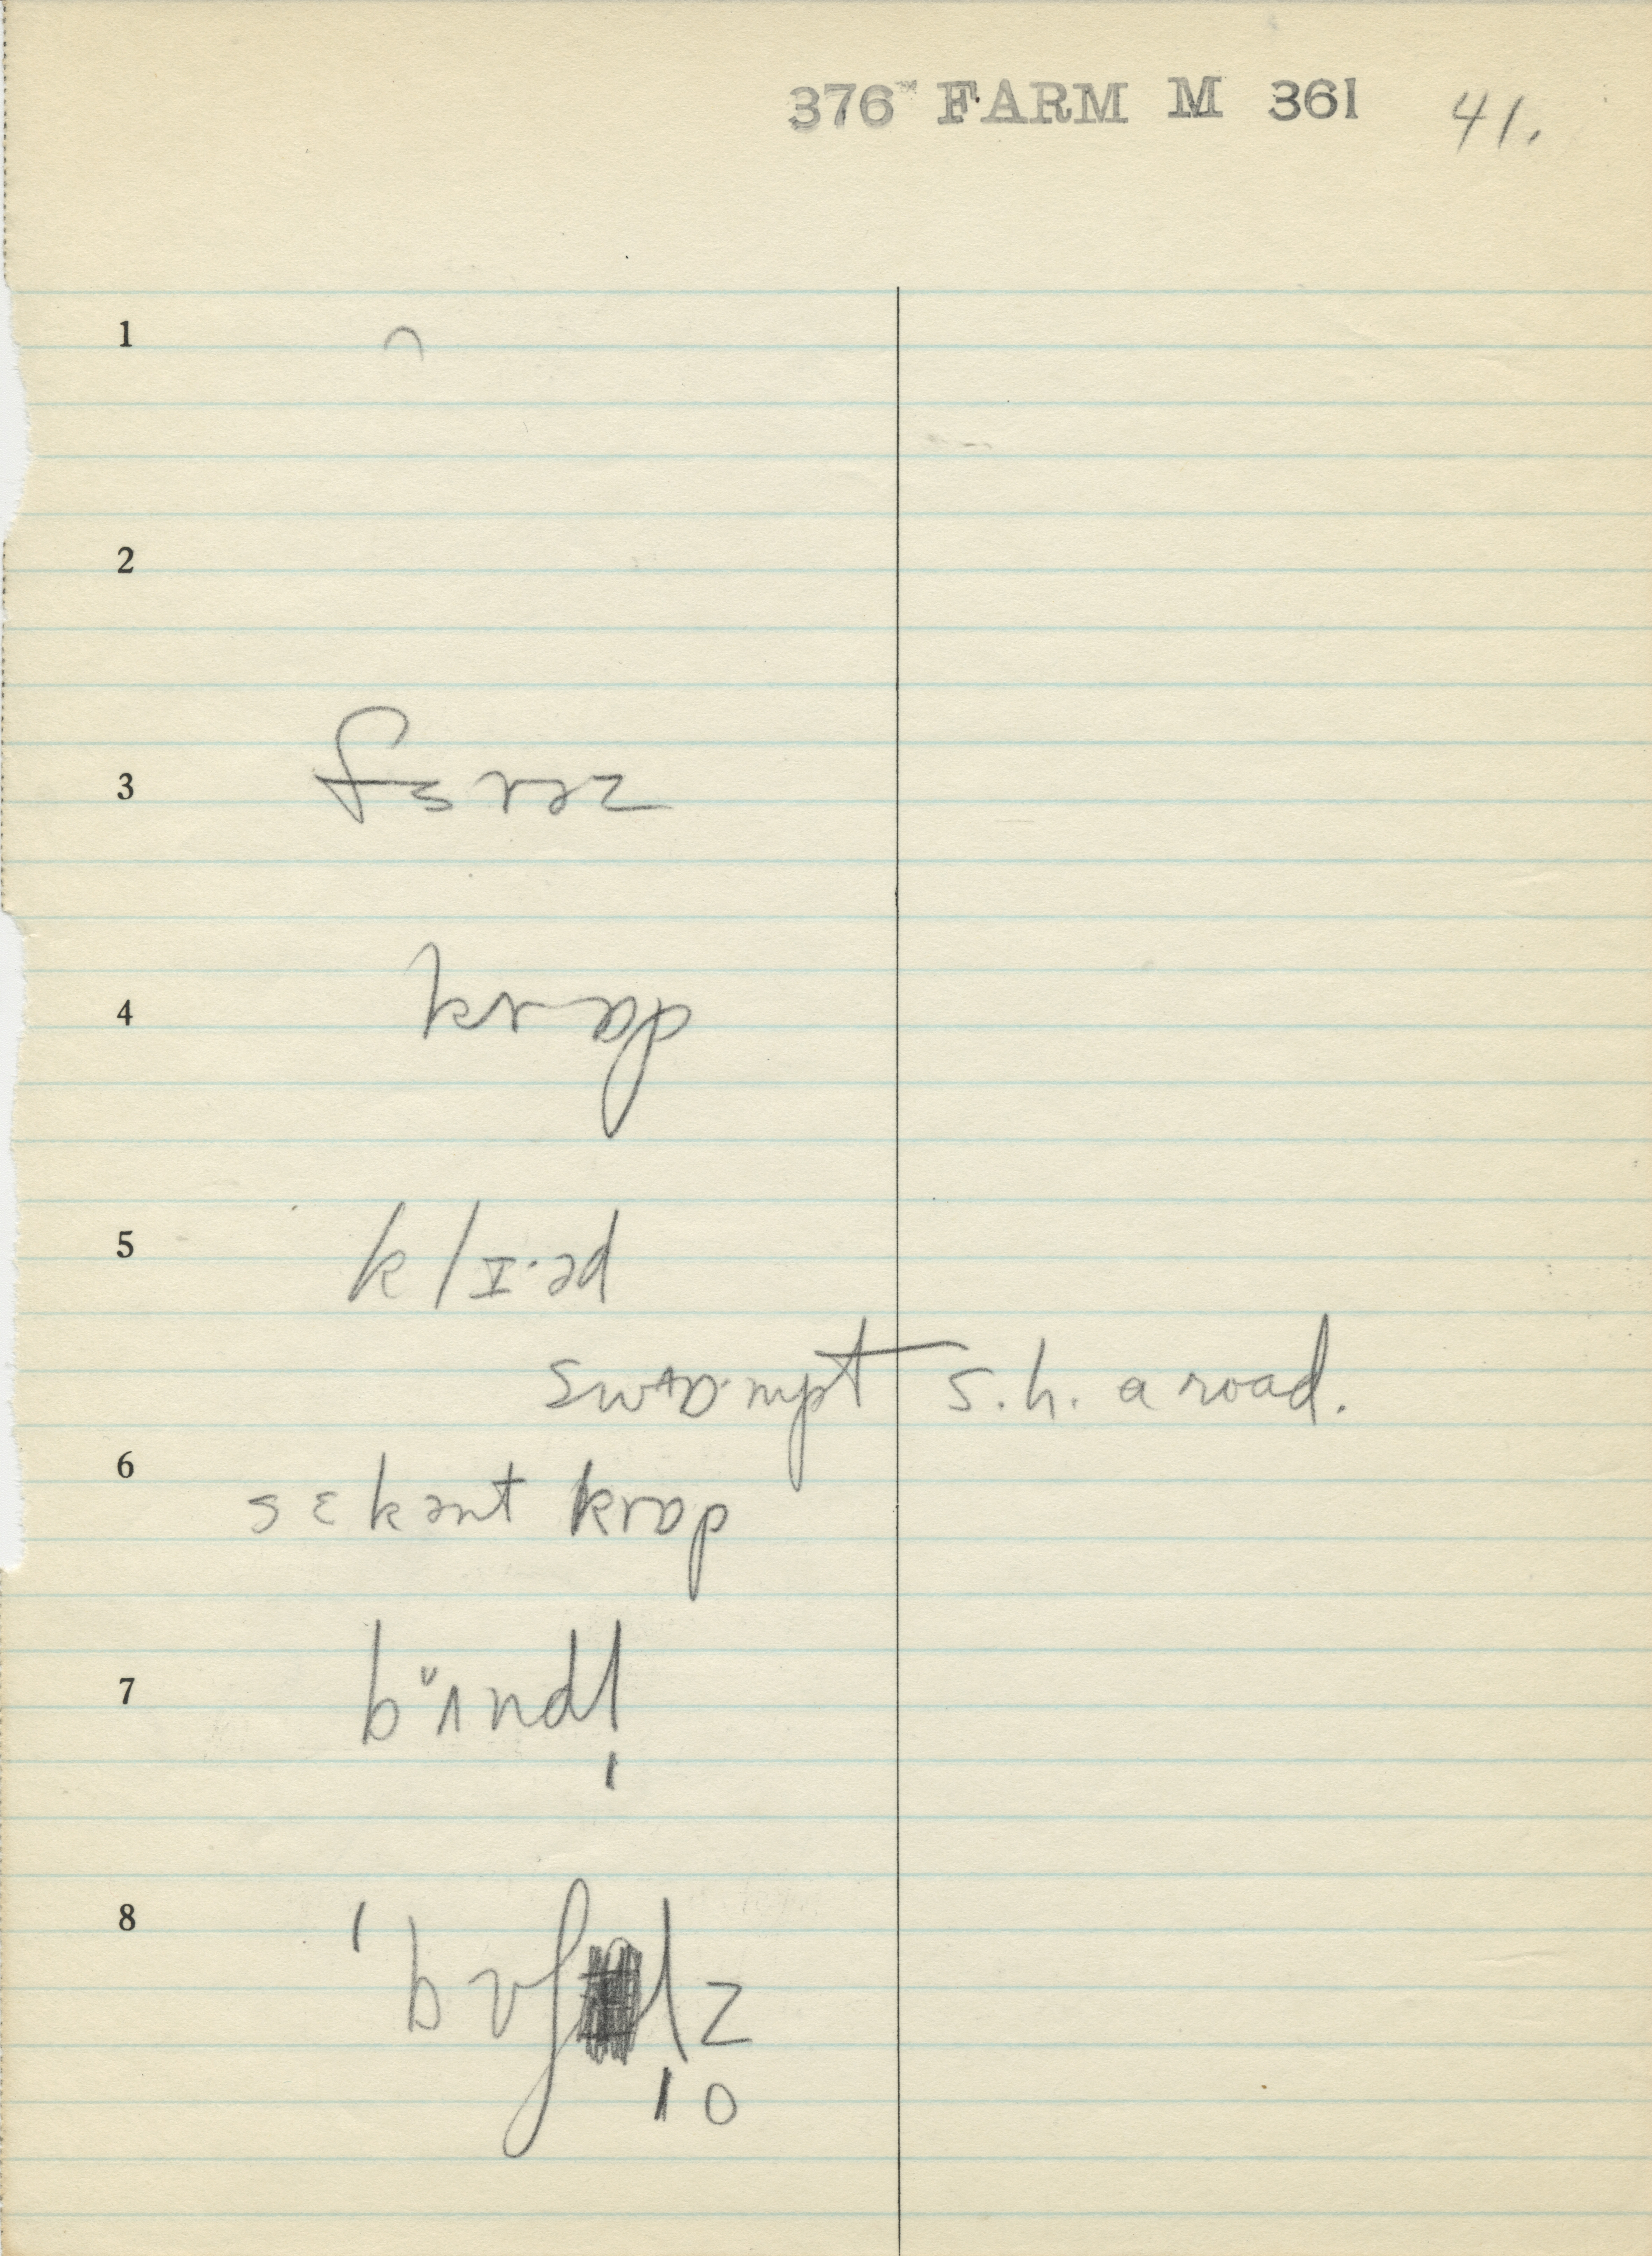 376 FARM M 361 41.
1 ⌒
2
3 fɜrəz
4 krɑp
5 klɪ·əd
swɑ·mpt s.h. a road.
6 sɛkənt krɑp
7 bʌndl̩
8 ˈbʊʃl̩z̥